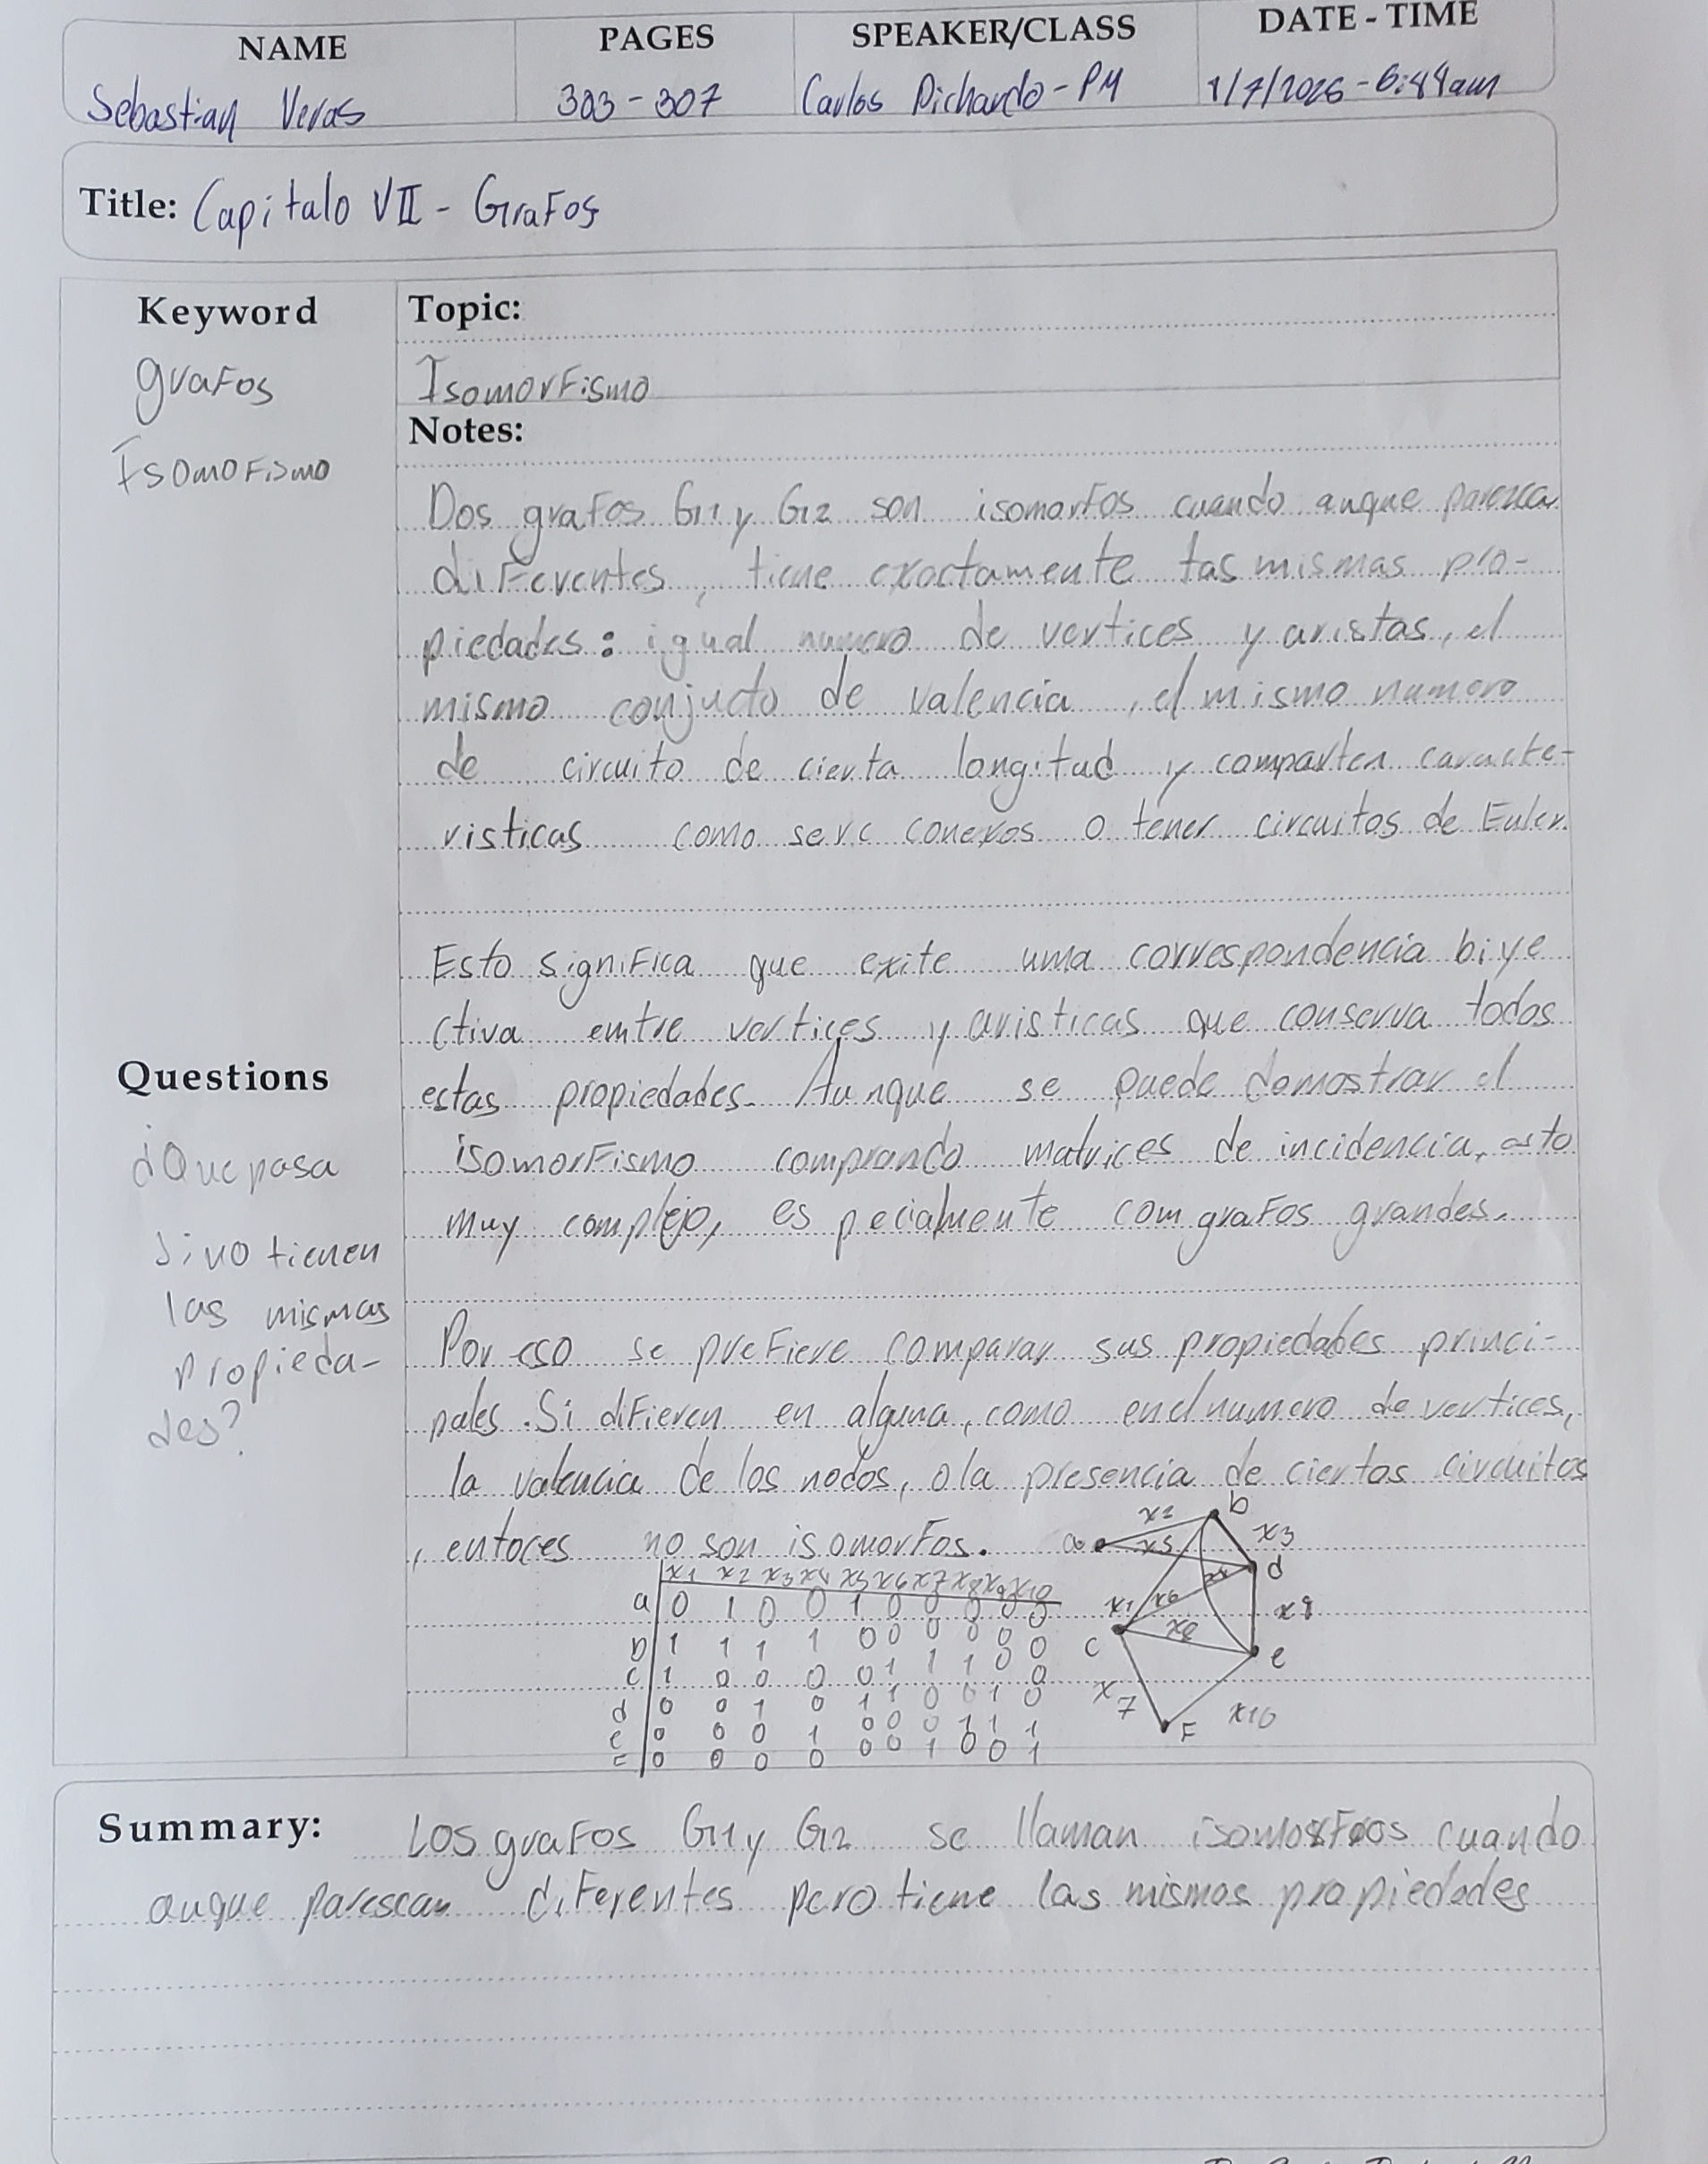 NAME PAGES SPEAKER/CLASS DATE - TIME
Sebastian Veras 303 - 307 Carlos Pichardo - PM 1/7/2025 - 6:44am
Title: Capitalo VII - Grafos
Keyword
grafos
Isomofismo
Topic:
Isomorfismo
Notes:
Dos grafos G1 y G2 son isomorfos cuando auque parezca
diferentes, tiene exactamente las mismas pro-
piedades: igual numero de vertices y aristas, el
mismo conjucto de valencia, el mismo numero
de circuito de cierta longitud y comparten caracte-
risticas como sere conexos o tener circuitos de Euler.
Esto significa que exite uma correspondencia biye
ctiva emtre vertices y aristicas que conserva todos
estas propiedades. Aunque se puede demostrar el
isomorfismo comprando matrices de incidencia, esto
muy complejo, especialmente com grafos grandes.
Por eso se prefiere comparar sus propiedades princi-
pales. Si difieren en alguna, como en el numero de vertices,
la valencia de los nodos, o la presencia de ciertos circuitos
, entoces no son isomorfos.
Questions
¿Que pasa
si no tienen
las mismas
propieda-
des?
x1 x2 x3 x4 x5 x6 x7 x8 x9 x10
a 0 1 0 0 1 0 0 0 0 0
b 1 1 1 1 0 0 0 0 0 0
c 1 0 0 0 0 1 1 1 0 0
d 0 0 1 0 1 1 0 0 1 0
e 0 0 0 1 0 0 0 1 1 1
F 0 0 0 0 0 0 1 0 0 1
a x2 b
x5 x3
d
x1 x6 x4
x9
c x8 e
x7 F x10
Summary: Los grafos G1 y G2 se llaman isomorfos cuando
auque parescan diferentes pero tiene las mismas propiedades